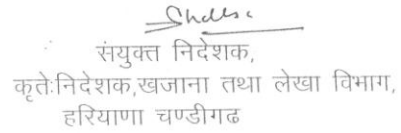 संयुक्त निदेशक,
कृतेःनिदेशक,खजाना तथा लेखा विभाग,
हरियाणा चण्डीगढ